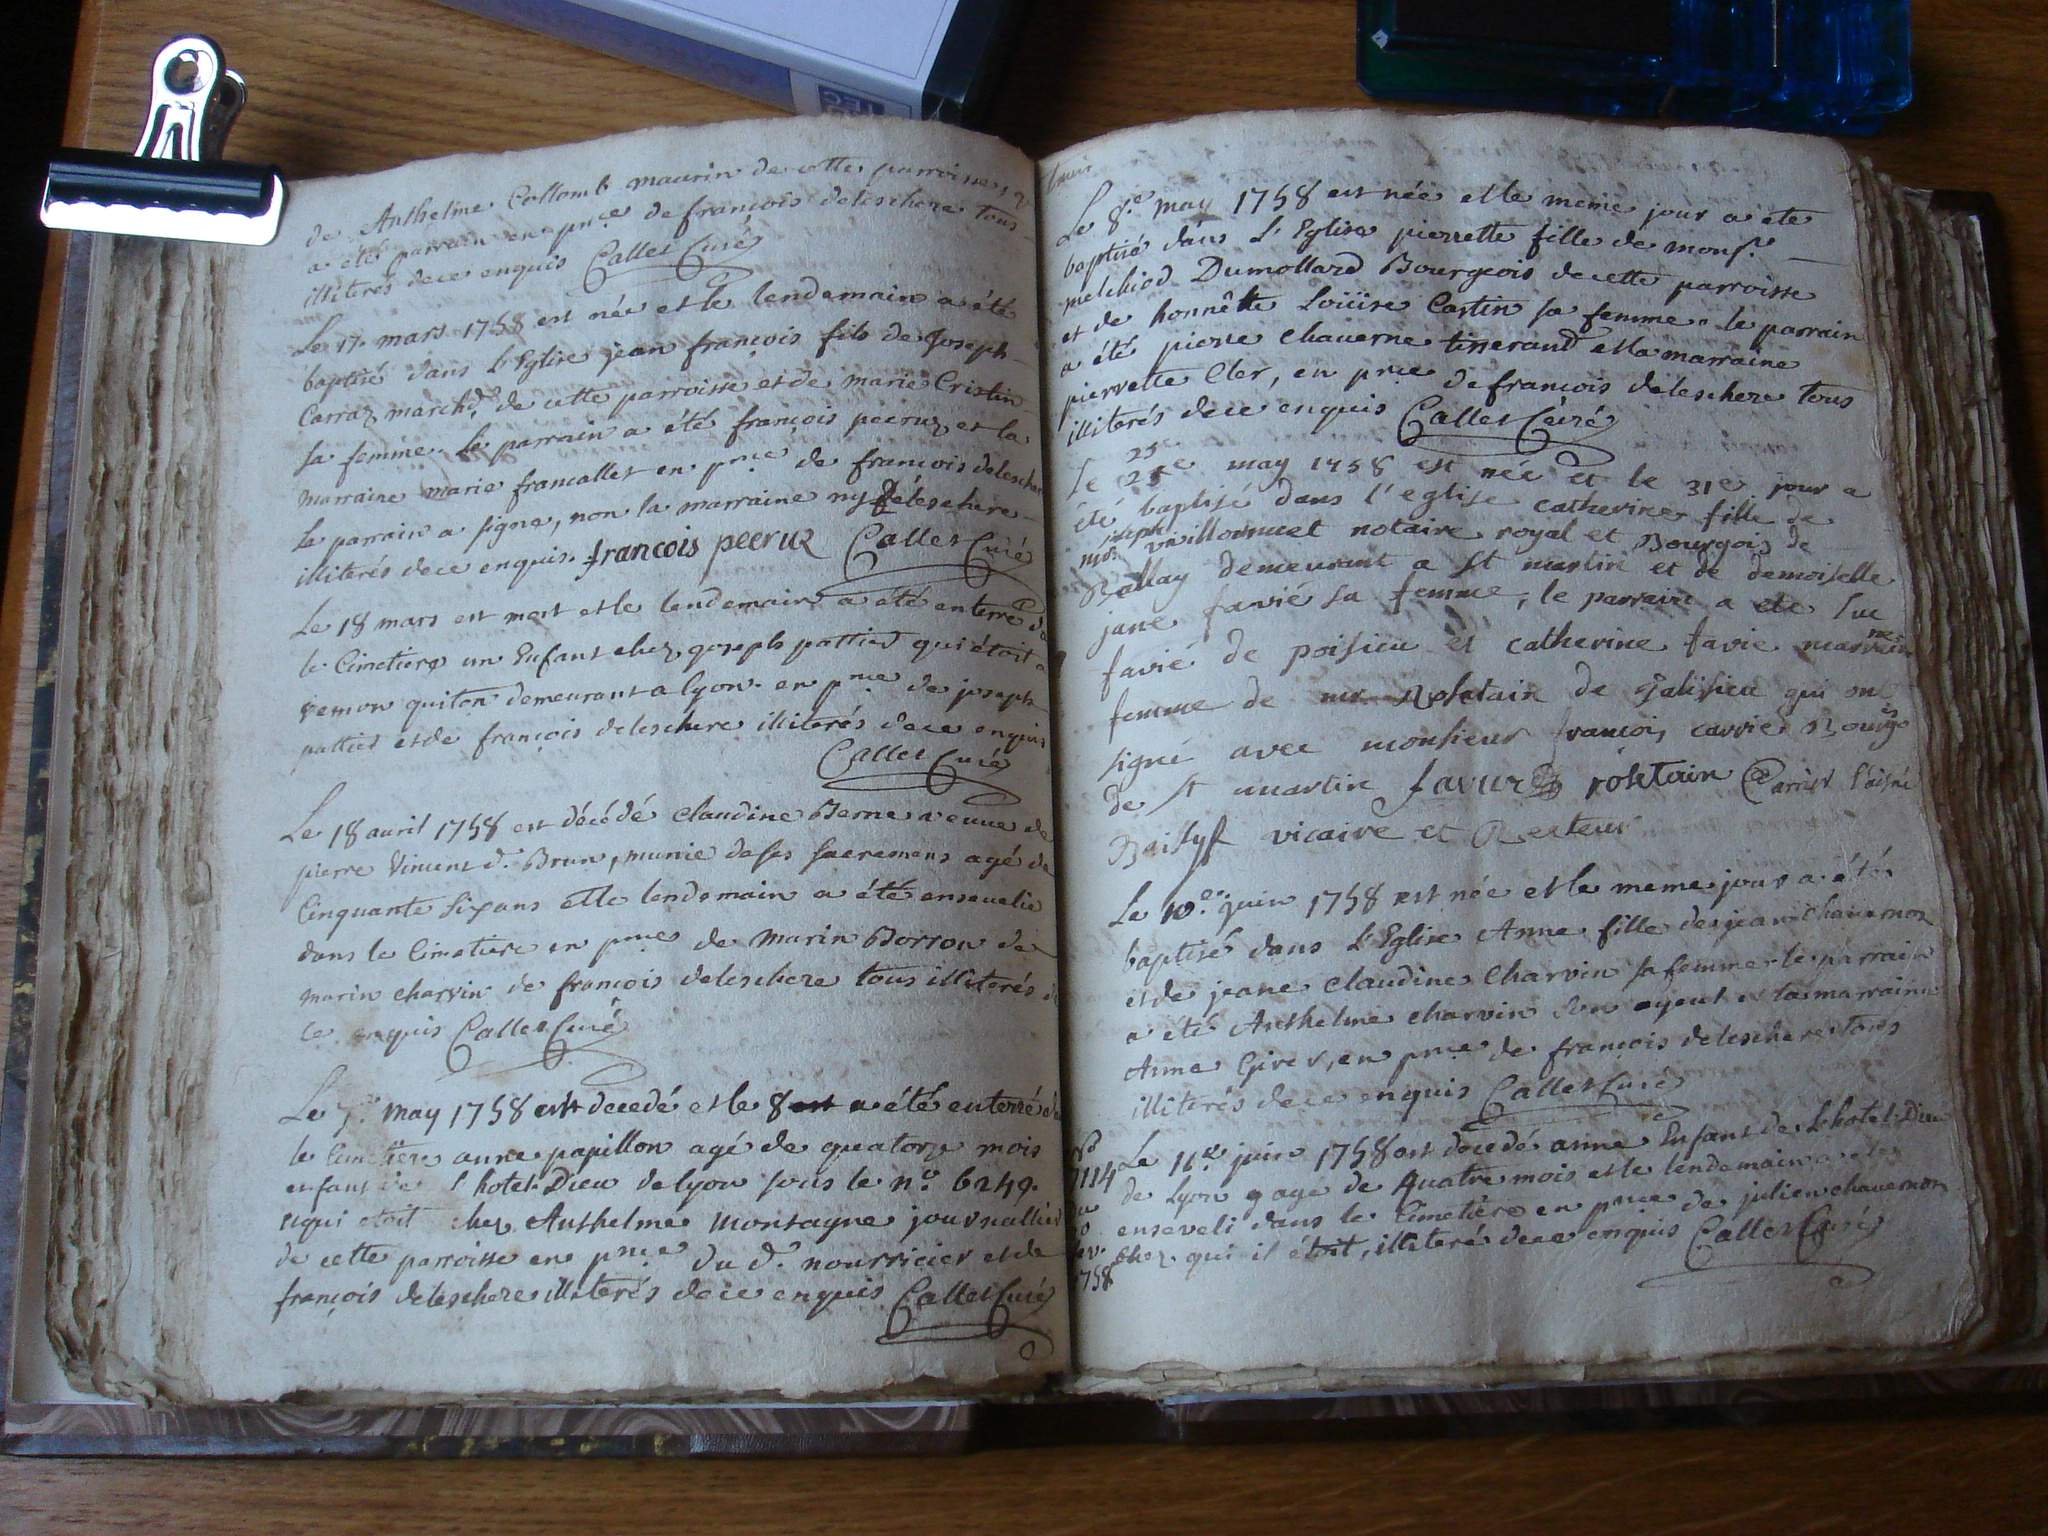 de Anthelme Collomb maurin de cette parroisse, &
a été parrain en pnce de françois deleschere tous
illiterés de ce enquis Callet Curé
Le 17. mars 1758 est née et le lendemain a été
baptisé dans l'Eglise jean françois fils de Joseph
Carraz marchd. de cette parroisse et de marie Cristin
sa femme. Le parrain a été françois peeruz et la
marraine marie francallet en pnce de francois delescher
Le parrain a signe, non la marraine ny deleschere
illiterés de ce enquis. francois peeruz Callet Curé
Le 18 mars est mort et le lendemain a été enterré da
le Cimetiere un Enfant chez joseph pattier qui étoit a
remon quiton demeurant a lyon. en pnce de joseph
pattier et de françois deleschere illiterés de ce enquis
Callet Curé
Le 18 avril 1758 est décédé claudine Berne veuve de
pierre Vincent d. Brun, munie de ses sacremens agé de
Cinquante six ans et le lendemain a été ensevelie
dans le Cimetiere en pnces de marin Borron de
marin charvin de françois deleschere tous illiterés d
ce enquis Callet Curé
Le 7e may 1758 est decedé et le 8 est a été enterré da
le Cimetiere anne papillon agé de quatorze mois
enfant de l'hotel-Dieu de lyon sous le n.o 6249.
et qui etoit chez Anthelme Montagne journallier
de cette parroisse en pnce du d. nourricier et de
françois deleschere illiterés de ce enquis Callet Curé
Le 8.e may 1758 est née et le meme jour a été
baptisé dans L'Eglise pierrette fille de monsr.
melchiod Dumollard Bourgeois de cette parroisse
et de honnête Loüise Castin sa femme. le parrain
a été pierre chaverne tisserand et la marraine
pierrette Cler, en pnce de francois deleschere tous
illiterés de ce enquis Callet Curé
25
Le 25e may 1758 est née et le 31e jour a
été baptisé dans l'eglise catherine fille de
joseph
mr. vuillonnet notaire royal et Bourgois de
Ballay demeurant a st martin et de demoiselle
jane favié sa femme, le parrain a ete luc
favié de poisieu et catherine favie marraine
femme de mr Roletain de Jalisieu qui ont
signé avec monsieur françois carrier Bourgois
de st martin favier roletain Carrier l'aisné
Baillyf vicaire et Recteur
Le 10.e juin 1758 est née et le meme jour a été
baptisé dans L'Eglise Anne fille de jean chavernon
et de jeane claudine Charvin sa femme. le parrain
a été Anthelme charvin son ayeul et la marraine
Anne Giret, en pnce de françois deleschere tous
illiterés de ce enquis Callet Curé
No
7114
du
av.
1758
Le 11e juin 1758 est decedé anne Enfant de L'hotel-Dieu
de Lyon agé de quatre mois et le lendemain a été
enseveli dans le Cimetiere en pnce de julien chavernon
chez qui il étoit, illiteré de ce enquis Callet Curé